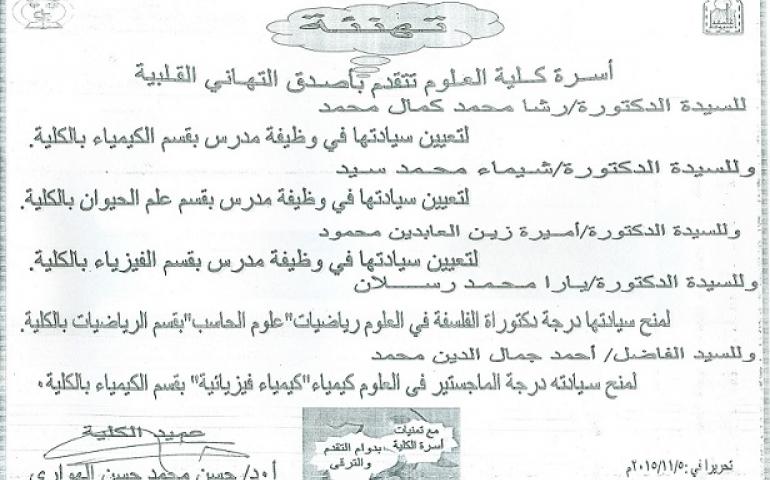 تهنئة
أسرة كلية العلوم تتقدم بأصدق التهاني القلبية
للسيدة الدكتورة/رشا محمد كمال محمد
لتعيين سيادتها في وظيفة مدرس بقسم الكيمياء بالكلية.
وللسيدة الدكتورة/شيماء محمد سيد
لتعيين سيادتها في وظيفة مدرس بقسم علم الحيوان بالكلية.
وللسيدة الدكتورة/أميرة زين العابدين محمود
لتعيين سيادتها في وظيفة مدرس بقسم الفيزياء بالكلية.
وللسيدة الدكتورة/يارا محمد رسلان
لمنح سيادتها درجة دكتوراة الفلسفة في العلوم رياضيات"علوم الحاسب"بقسم الرياضيات بالكلية.
وللسيد الفاضل/ أحمد جمال الدين محمد
لمنح سيادته درجة الماجستير فى العلوم كيمياء"كيمياء فيزيائية" بقسم الكيمياء بالكلية.
مع تمنيات
أسرة الكلية
بدوام التقدم
والترقى
عميد الكلية
أ.د/ حسن محمد حسن الهوارى
تحريرا في :٢٠١٥/١١/٥م